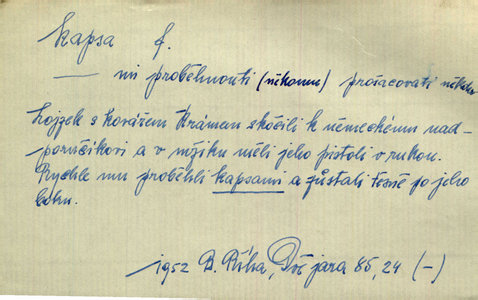 kapsa f.
— mi proběhnouti (někomu) prošacovati někoho
Lojzek s kovářem Krámem skočili k německému nad-
poručíkovi a v mžiku měli jeho pistoli v rukou.
Rychle mu proběhli kapsami a zůstali těsně po jeho
boku.
1952 B. Říha, Dvě jara 85, 24 (—)